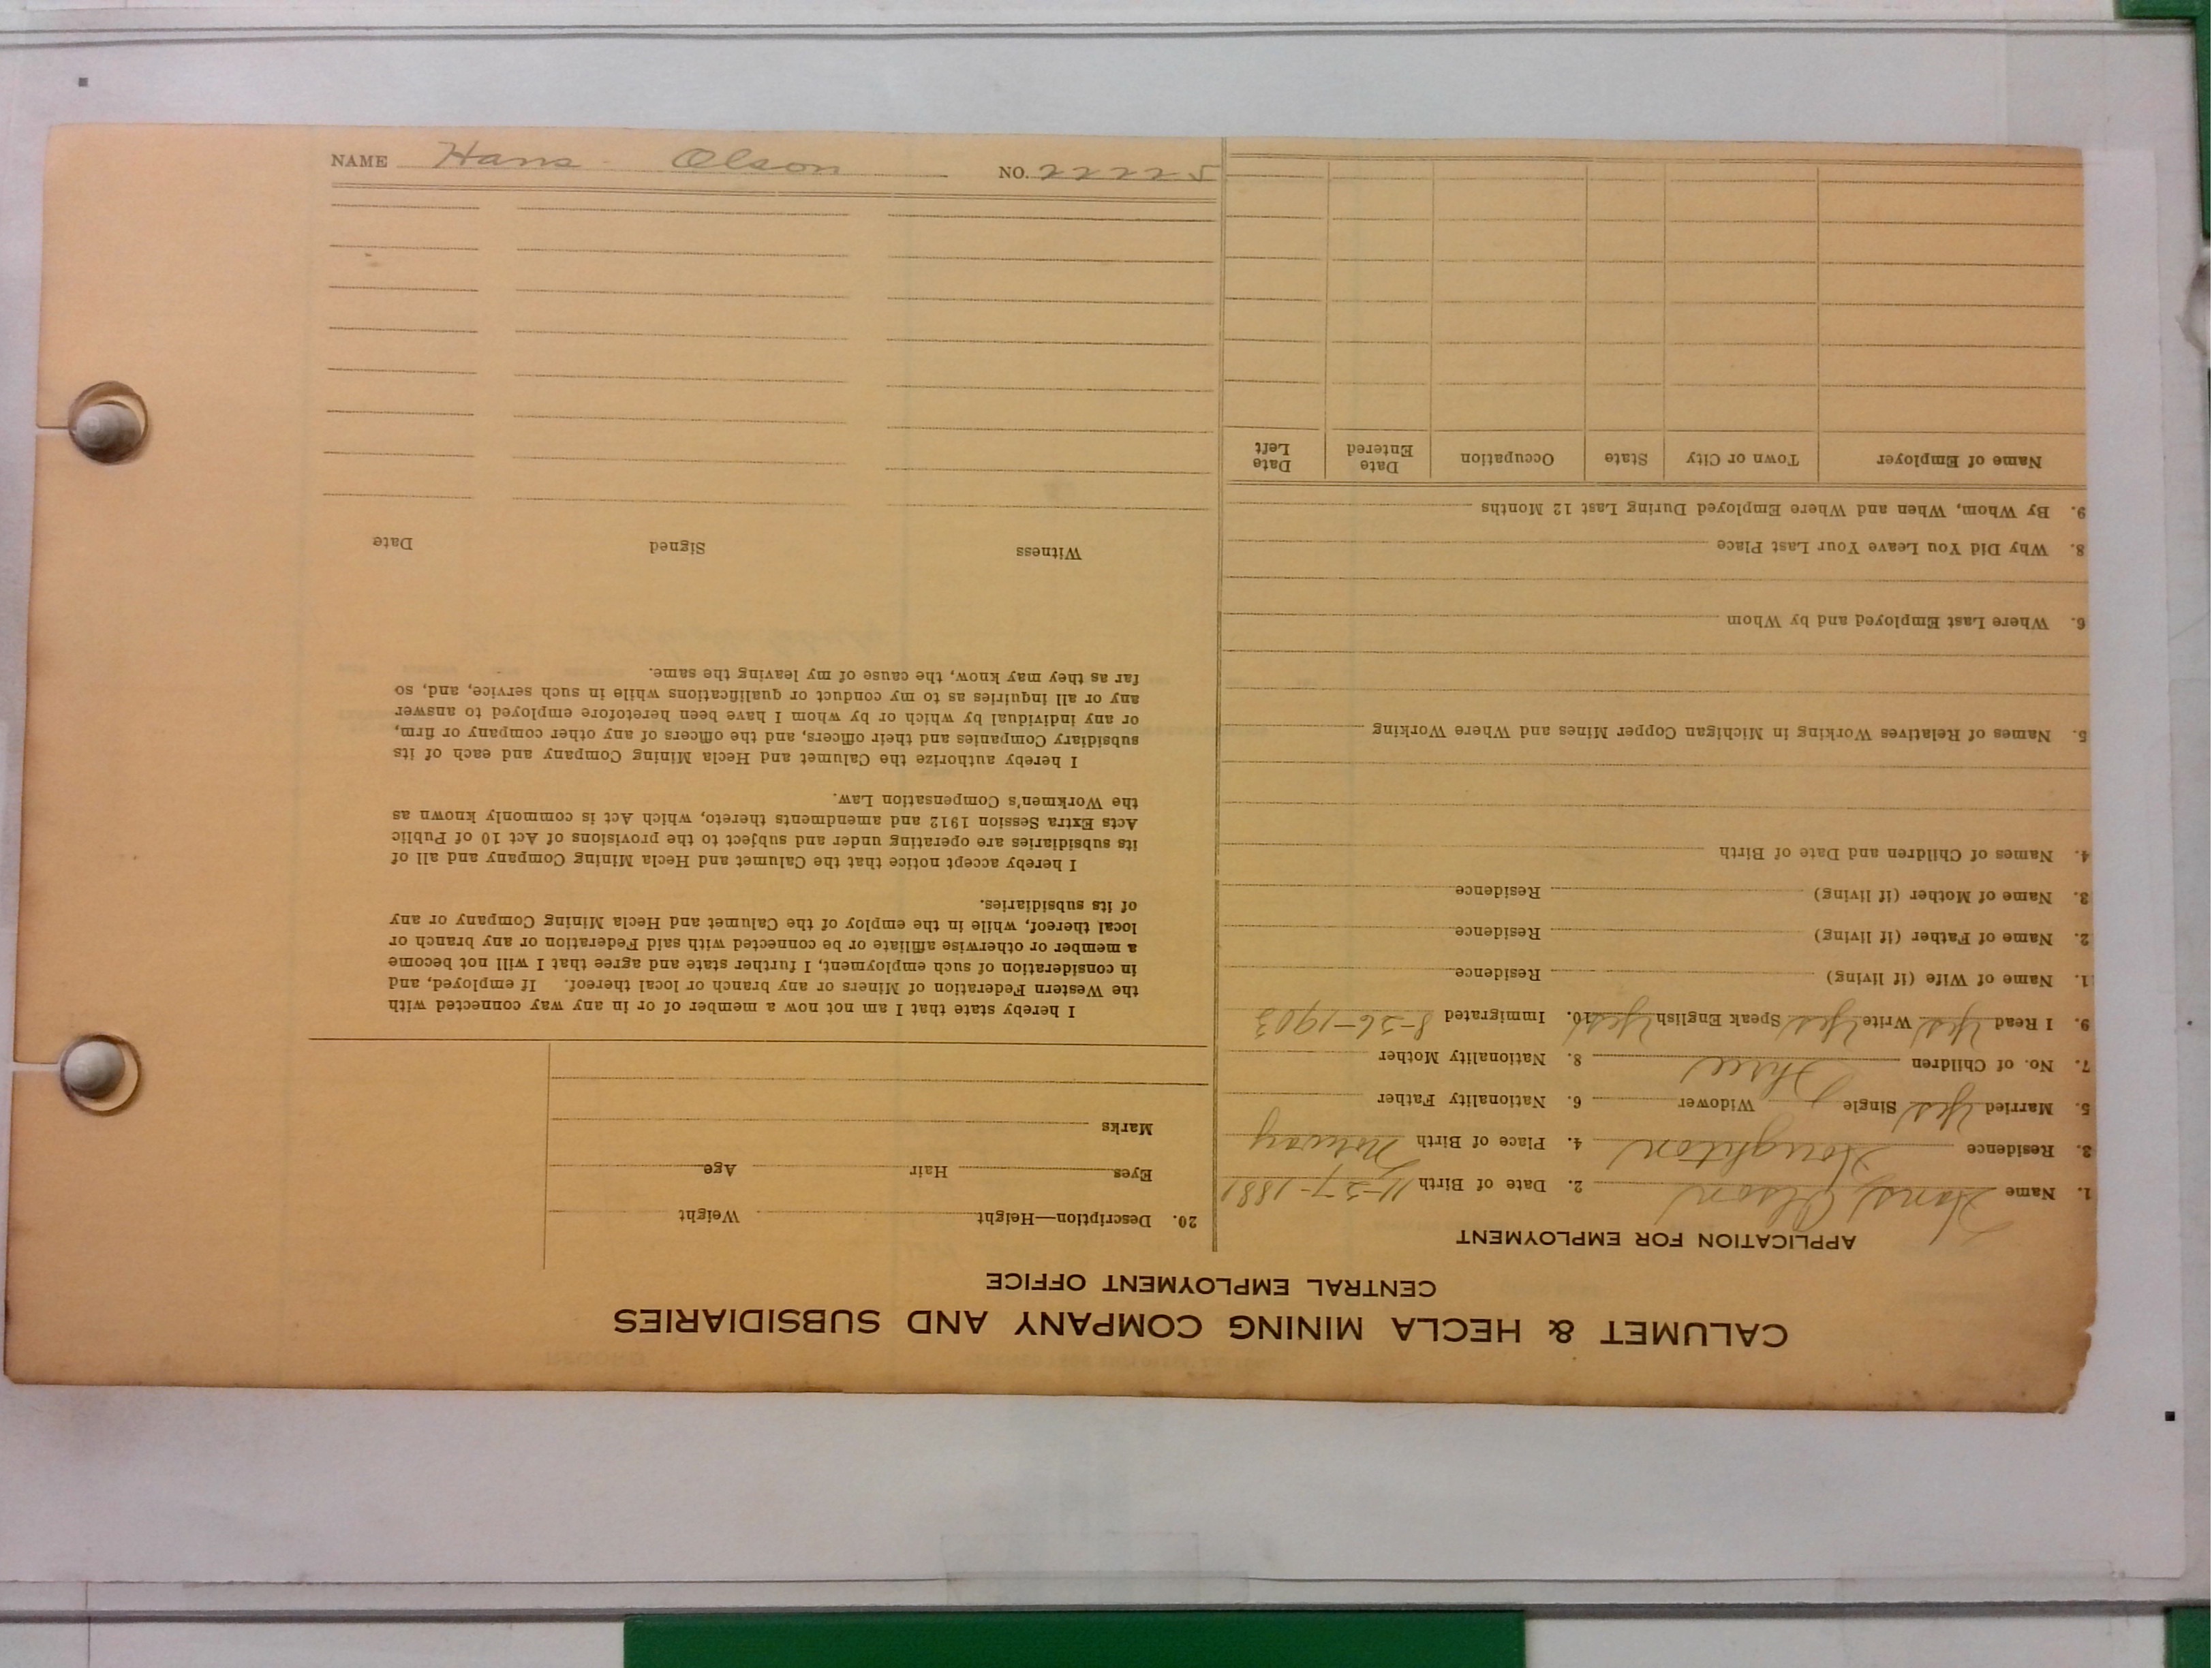 CALUMET & HECLA MINING COMPANY AND SUBSIDIARIES
CENTRAL EMPLOYMENT OFFICE
APPLICATION FOR EMPLOYMENT
1. Name Hans Olson 2. Date of Birth 11-27-1881
3. Residence Houghton 4. Place of Birth Norway
5. Married Yes Single Widower 6. Nationality Father
7. No. of Children Three 8. Nationality Mother
9. I Read Yes Write Yes Speak English Yes 10. Immigrated 8-26-1903
11. Name of Wife (if living) Residence
2. Name of Father (if living) Residence
3. Name of Mother (if living) Residence
4. Names of Children and Date of Birth
5. Names of Relatives Working in Michigan Copper Mines and Where Working
6. Where Last Employed and by Whom
8. Why Did You Leave Your Last Place
9. By Whom, When and Where Employed During Last 12 Months
Name of Employer Town or City State Occupation Date Entered Date Left
20. Description—Height Weight
Eyes Hair Age
Marks
I hereby state that I am not now a member of or in any way connected with
the Western Federation of Miners or any branch or local thereof. If employed, and
in consideration of such employment, I further state and agree that I will not become
a member or otherwise affiliate or be connected with said Federation or any branch or
local thereof, while in the employ of the Calumet and Hecla Mining Company or any
of its subsidiaries.
I hereby accept notice that the Calumet and Hecla Mining Company and all of
its subsidiaries are operating under and subject to the provisions of Act 10 of Public
Acts Extra Session 1912 and amendments thereto, which Act is commonly known as
the Workmen's Compensation Law.
I hereby authorize the Calumet and Hecla Mining Company and each of its
subsidiary Companies and their officers, and the officers of any other company or firm,
or any individual by which or by whom I have been heretofore employed to answer
any or all inquiries as to my conduct or qualifications while in such service, and, so
far as they may know, the cause of my leaving the same.
Witness Signed Date
NAME Hans Olson NO. 22225